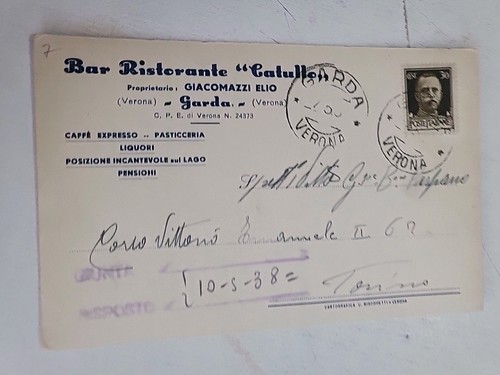 7
Bar Ristorante "Catullo„
Proprietario: GIACOMAZZI ELIO
(Verona) - Garda. - (Verona)
C. P. E. di Verona N. 24373
CAFFÈ EXPRESSO -- PASTICCERIA
LIQUORI
POSIZIONE INCANTEVOLE sul LAGO
PENSIONI
GARDA
VERONA
30
POSTE ITALIANE
VERONA
Spett Ditta
Corso Vittorio Emanuele II 67
GIUNTA
10-5-38=
Torino
RISPOSTO